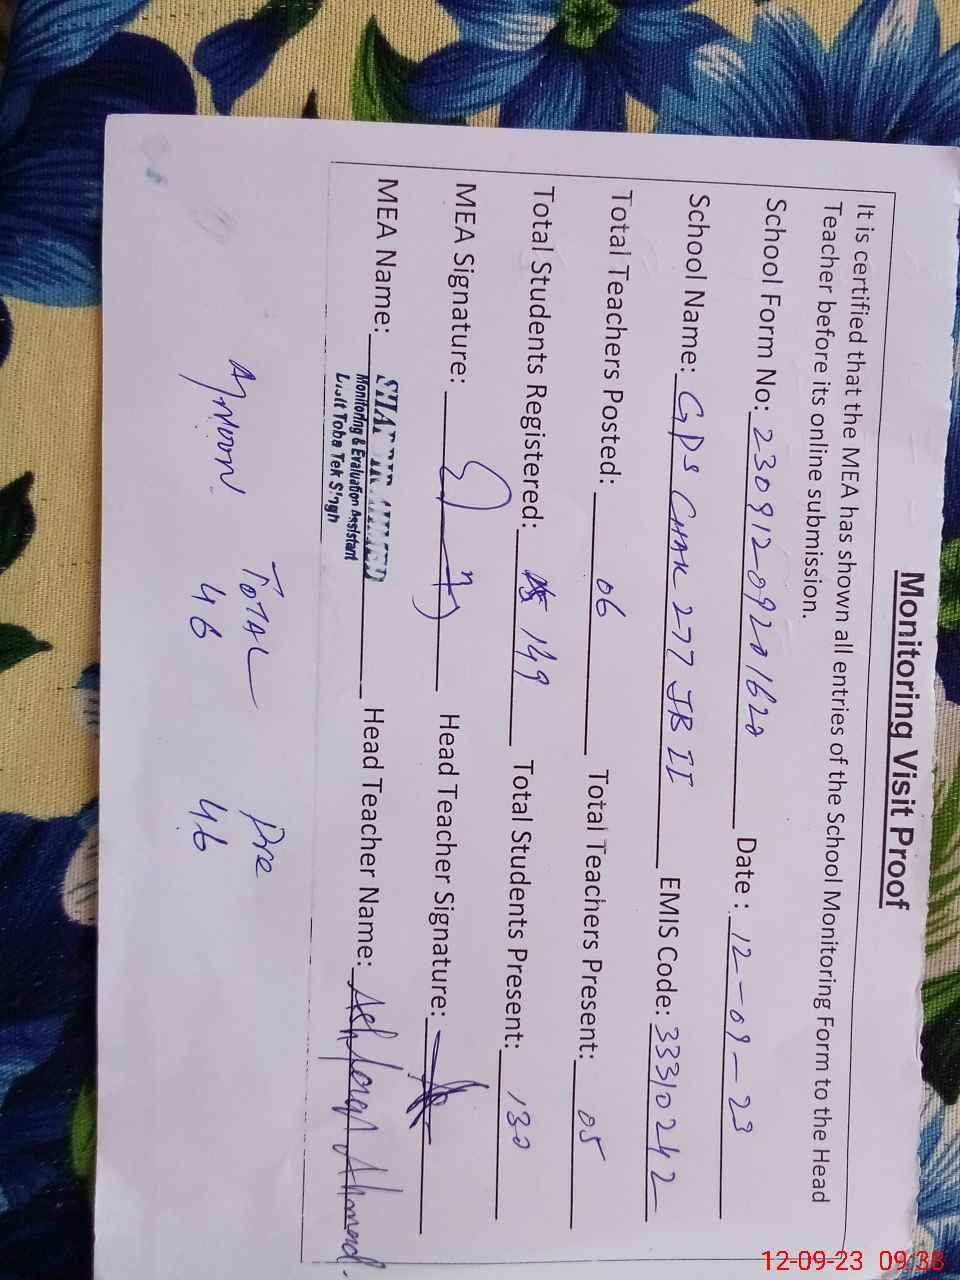 Monitoring Visit Proof
It is certified that the MEA has shown all entries of the School Monitoring Form to the Head
Teacher before its online submission.
School Form No: 23091209201620 Date : 12-09-23
School Name: GPS CHAK 277 JB II EMIS Code: 33310242
Total Teachers Posted: 06 Total Teachers Present: 05
Total Students Registered: 149 Total Students Present: 130
MEA Signature: Head Teacher Signature:
MEA Name: Head Teacher Name: Ashfaq Ahmad.
Monitoring & Evaluation Assistant
Distt Toba Tek Singh
TOTAL Pre
46 46
12-09-23 09:38